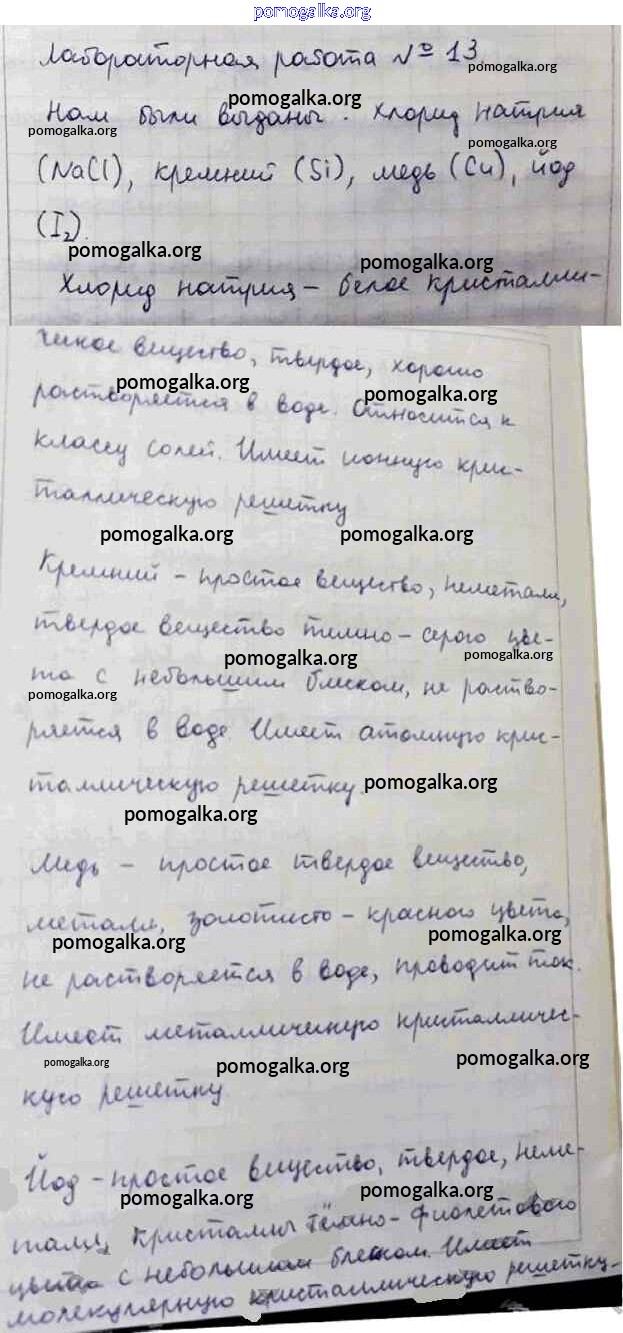 pomogalka.org
Лабораторная работа № 13
pomogalka.org
Нам были выданы: хлорид натрия
pomogalka.org
pomogalka.org pomogalka.org
(NaCl), кремний (Si), медь (Cu), йод
(I₂).
pomogalka.org pomogalka.org
Хлорид натрия – белое кристалли-
ческое вещество, твердое, хорошо
pomogalka.org pomogalka.org
растворяется в воде. Относится к
классу солей. Имеет ионную крис-
таллическую решетку
pomogalka.org pomogalka.org
Кремний – простое вещество, неметалл,
твердое вещество темно-серого цве-
pomogalka.org pomogalka.org
та с небольшим блеском, не раство-
pomogalka.org
ряется в воде. Имеет атомную крис-
таллическую решетку.
pomogalka.org
pomogalka.org
Медь – простое твердое вещество,
металл, золотисто-красного цвета,
pomogalka.org pomogalka.org
не растворяется в воде, проводит ток.
Имеет металлическую кристалличес-
pomogalka.org pomogalka.org pomogalka.org
кую решетку
Йод – простое вещество, твердое, неме-
pomogalka.org pomogalka.org
талл, кристаллы тёмно-фиолетового
цвета с небольшим блеском. Имеет
pomogalka.org pomogalka.org
молекулярную кристаллическую решетку.